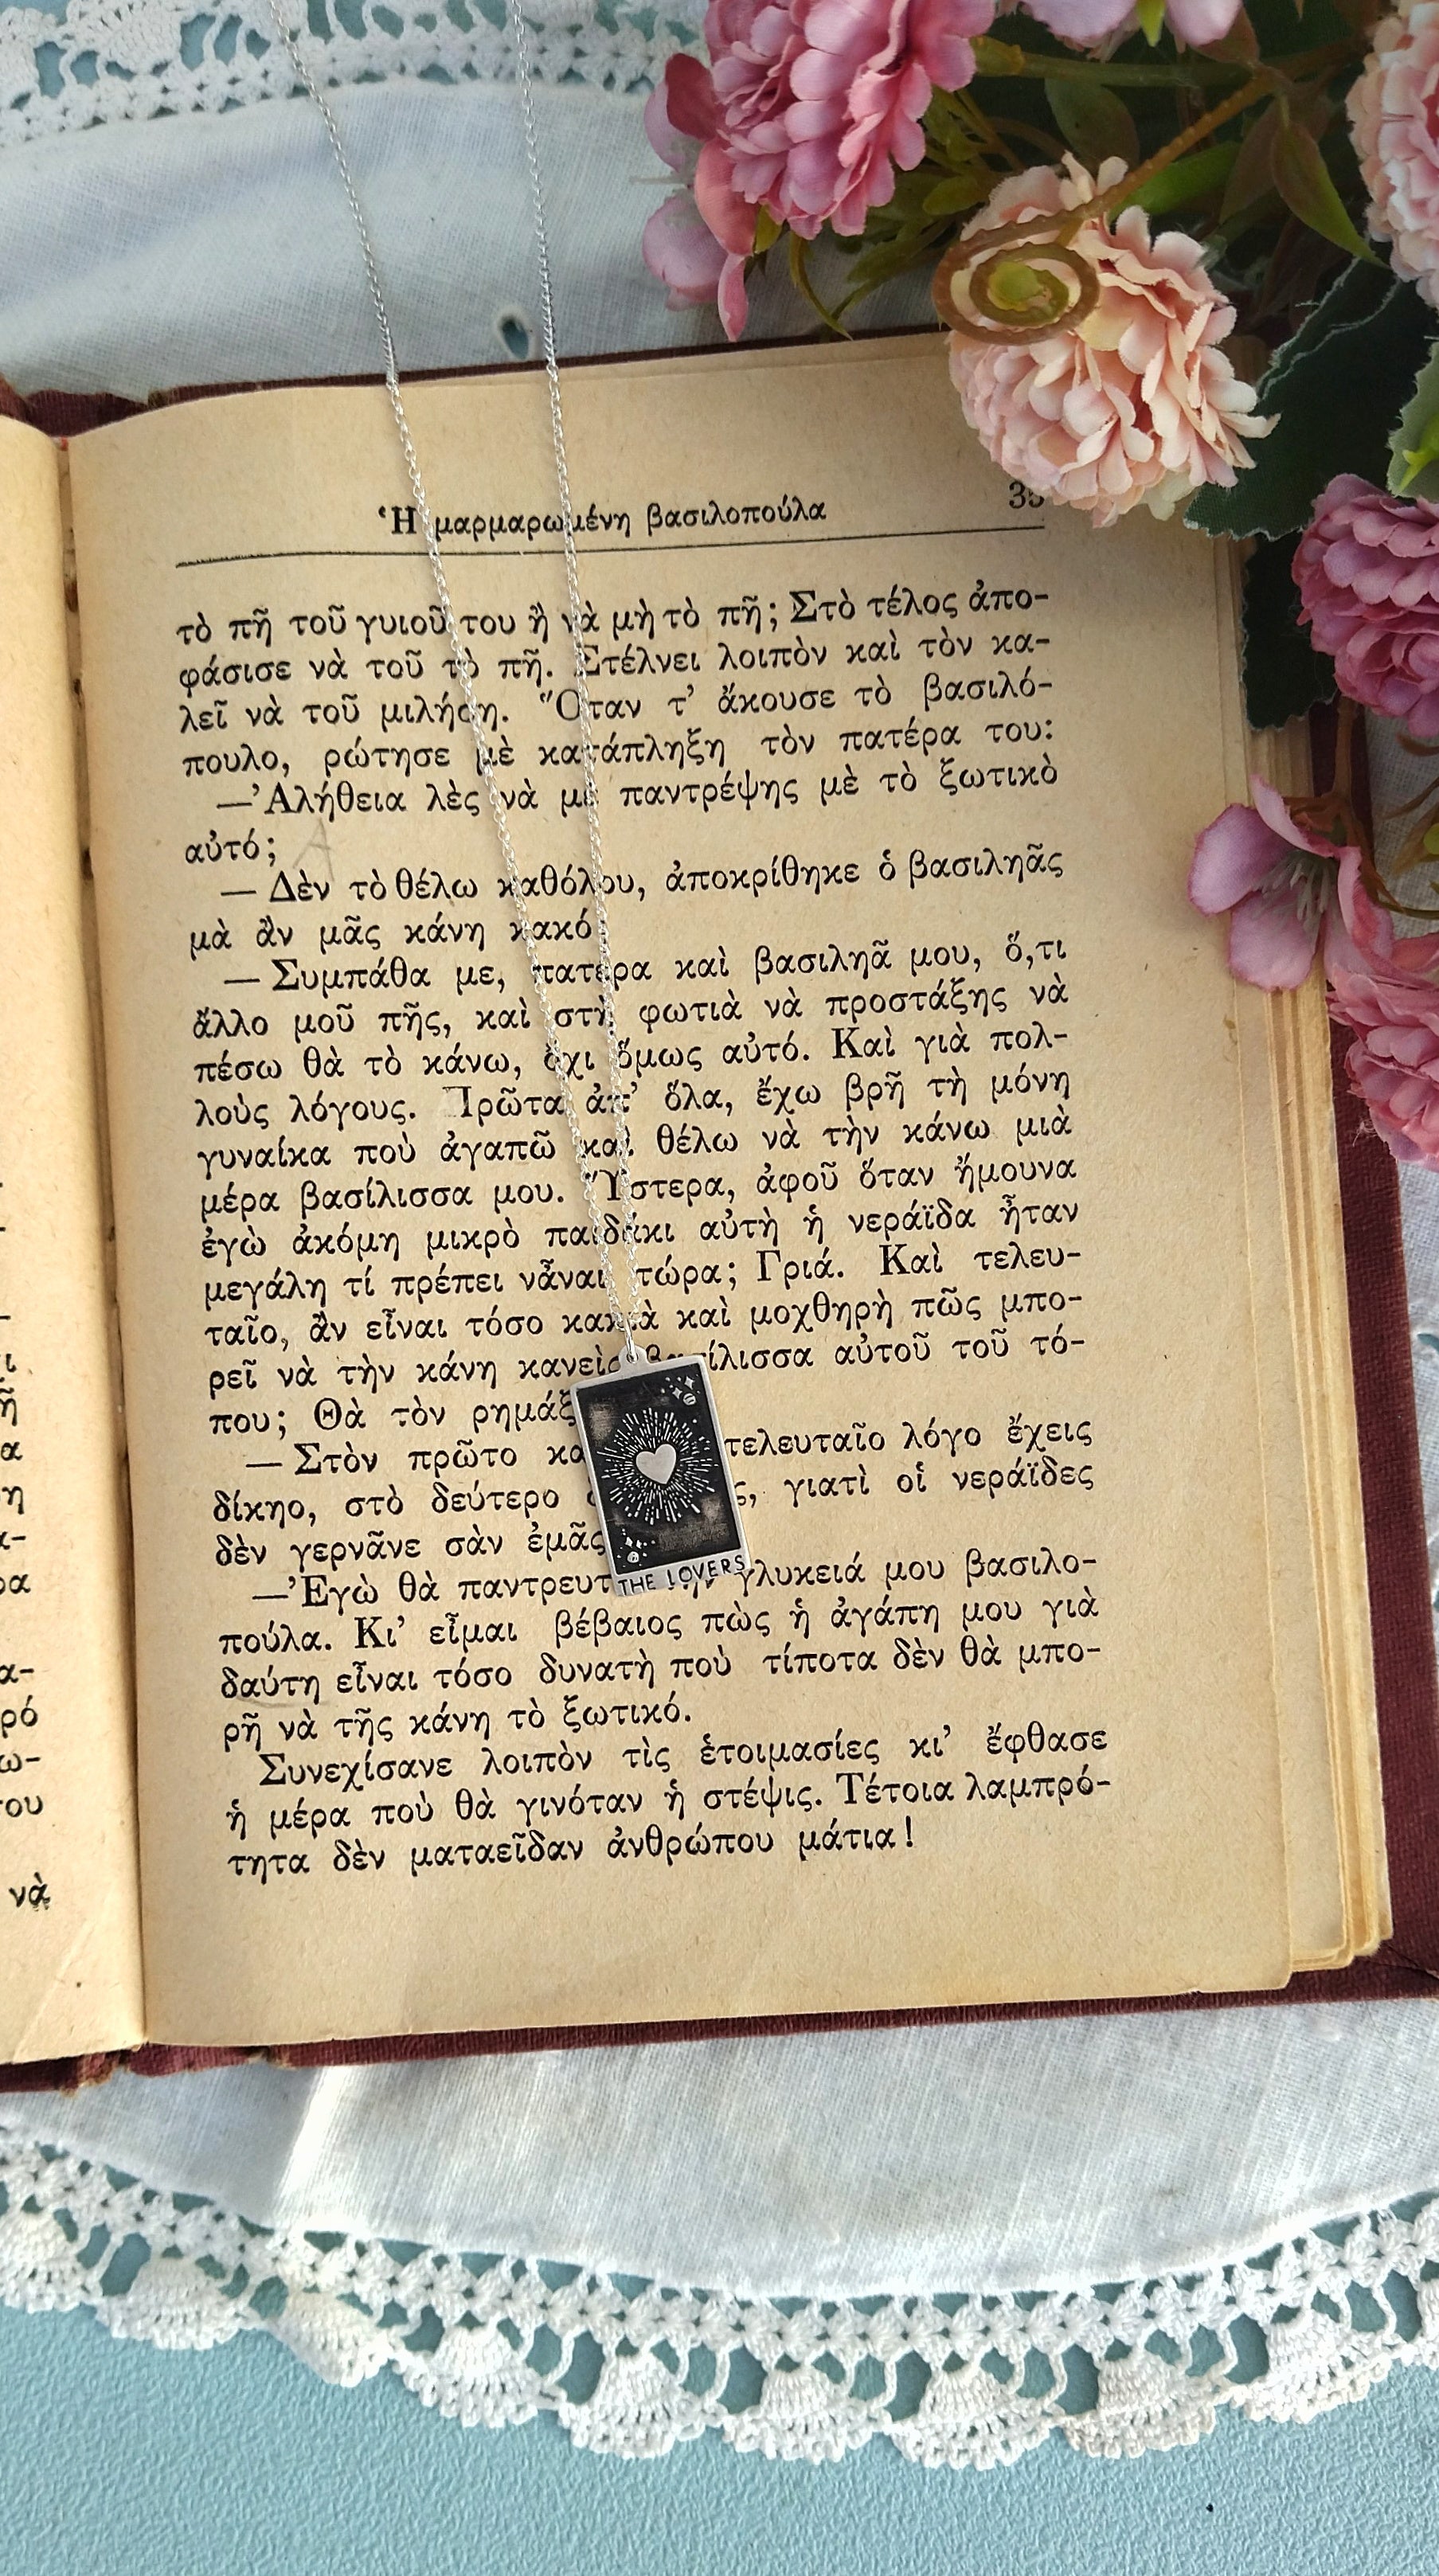 Ἡ μαρμαρωμένη βασιλοπούλα
τὸ πῆ τοῦ γυιοῦ του ἢ νὰ μὴ τὸ πῆ; Στὸ τέλος ἀπο-
φάσισε νὰ τοῦ τὸ πῆ. Στέλνει λοιπὸν καὶ τὸν κα-
λεῖ νὰ τοῦ μιλήση. Ὅταν τ’ ἄκουσε τὸ βασιλό-
πουλο, ρώτησε μὲ κατάπληξη τὸν πατέρα του:
—Ἀλήθεια λὲς νὰ μὲ παντρέψης μὲ τὸ ξωτικὸ
αὐτό;
— Δὲν τὸ θέλω καθόλου, ἀποκρίθηκε ὁ βασιληᾶς
μὰ ἂν μᾶς κάνη κακό;
— Συμπάθα με, πατέρα καὶ βασιληᾶ μου, ὅ,τι
ἄλλο μοῦ πῆς, καὶ στὴ φωτιὰ νὰ προστάξης νὰ
πέσω θὰ τὸ κάνω, ὄχι ὅμως αὐτό. Καὶ γιὰ πολ-
λοὺς λόγους. Πρῶτα ἀπ’ ὅλα, ἔχω βρῆ τὴ μόνη
γυναίκα ποὺ ἀγαπῶ καὶ θέλω νὰ τὴν κάνω μιὰ
μέρα βασίλισσα μου. Ὕστερα, ἀφοῦ ὅταν ἤμουνα
ἐγὼ ἀκόμη μικρὸ παιδάκι αὐτὴ ἡ νεράϊδα ἦταν
μεγάλη τί πρέπει νἆναι τώρα; Γριά. Καὶ τελευ-
ταῖο, ἂν εἶναι τόσο κακιὰ καὶ μοχθηρὴ πῶς μπο-
ρεῖ νὰ τὴν κάνη κανεὶς βασίλισσα αὐτοῦ τοῦ τό-
που; Θὰ τὸν
— Στὸν πρῶτο τελευταῖο λόγο ἔχεις
δίκηο, στὸ δεύτερο γιατὶ οἱ νεράϊδες
δὲν γερνᾶνε σὰν ἐμᾶς
—Ἐγὼ θὰ γλυκειά μου βασιλο-
πούλα. Κι’ εἶμαι βέβαιος πὼς ἡ ἀγάπη μου γιὰ
δαύτη εἶναι τόσο δυνατὴ ποὺ τίποτα δὲν θὰ μπο-
ρῆ νὰ τῆς κάνη τὸ ξωτικό.
Συνεχίσανε λοιπὸν τὶς ἑτοιμασίες κι’ ἔφθασε
ἡ μέρα ποὺ θὰ γινόταν ἡ στέψις. Τέτοια λαμπρό-
τητα δὲν ματαεῖδαν ἀνθρώπου μάτια!
THE LOVERS
νὰ